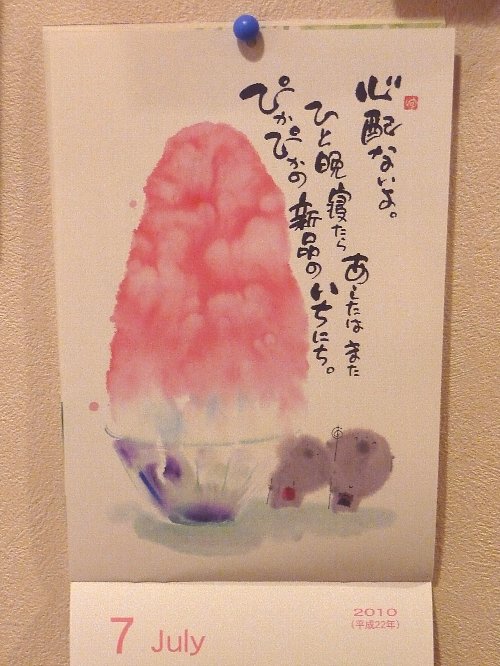 心配ないよ。
ひと晩寝たら
あしたはまた
ぴかぴかの
新品のいちにち。
7 July
2010
(平成22年)